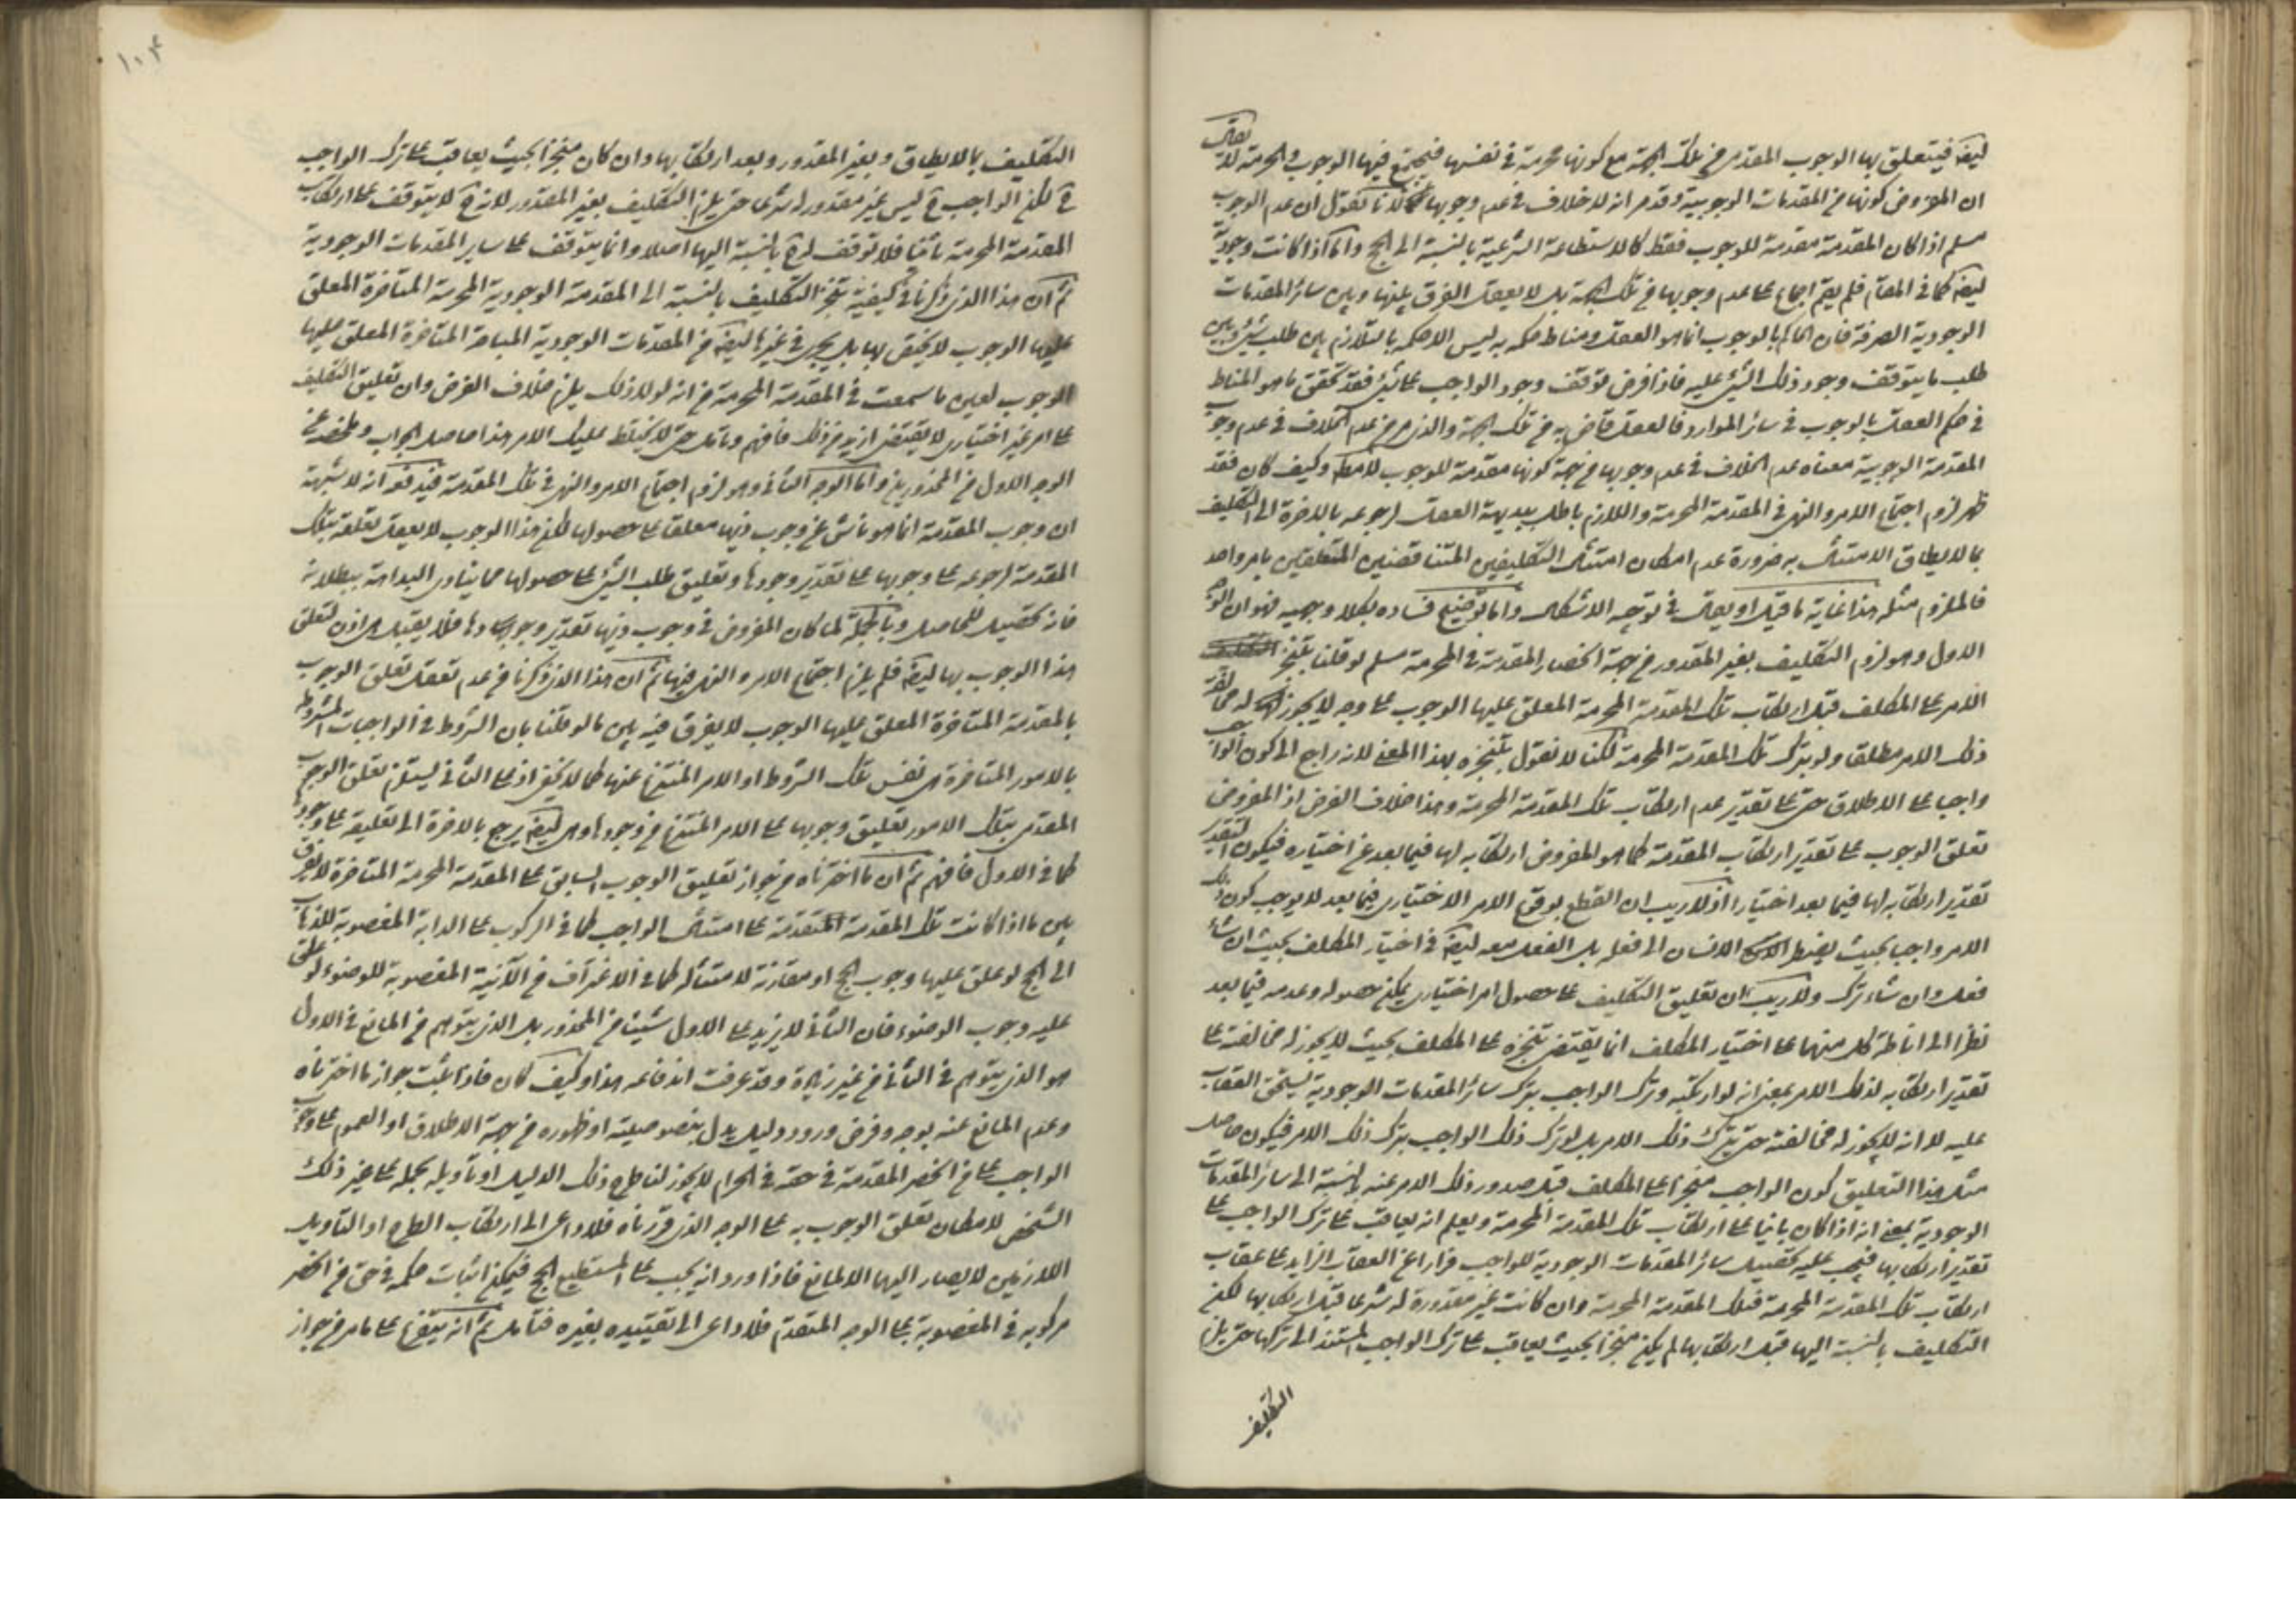 ليضه فيتعلق بها الوجوب المقدمى من تلك الجهة مع كونها محرمة في نفسها فيجتمع فيها الوجوب و الحرمة لا يقال
ان المفروض كونها من المقدمات الوجوبية و قد مر انه لا خلاف في عدم وجوبها لانا نقول ان عدم الوجوب
مسلم اذا كان المقدمة مقدمة للوجوب فقط كالاستطاعة الشرعية بالنسبة الى الحج و اما اذا كانت وجودية
ليضه كما في المقام فلم يقم اجماع على عدم وجوبها من تلك الجهة بل لا يعقل الفرق بينها و بين سائر المقدمات
الوجودية الصرفة فان الحاكم بالوجوب انما هو العقل و مناط حكمه به ليس الا حكمه بالتلازم بين طلب شيء و بين
طلب ما يتوقف وجود ذلك الشيء عليه فاذا فرض توقف وجود الواجب على شيء فقد تحقق ما هو المناط
في حكم العقل بالوجوب في سائر الموارد فالعقل قاض به من تلك الجهة و الذى مر من عدم الخلاف في عدم وجوب
المقدمة الوجوبية معناه عدم الخلاف في عدم وجوبها من جهة كونها مقدمة للوجوب لا مط و كيف كان فقد
ظهر لزوم اجتماع الامر و النهى في المقدمة المحرمة و اللازم باطل ببديهة العقل لرجوعه بالاخرة الى التكليف
بما لا يطاق الامتثال به ضرورة عدم امكان امتثال التكليفين المتناقضين المتعلقين بامر واحد
فالملزوم مثله هذا غاية ما قيل او يقال في توجيه الاشكال و اما توضيح فساده بكلا وجهيه فهو ان الوجه
الاول و هو لزوم التكليف بغير المقدور من جهة انحصار المقدمة في المحرمة مسلم لو قلنا بتنجز
الامر على المكلف قبل ارتكاب تلك المقدمة المحرمة المعلق عليها الوجوب على وجه لا يجوز له مخالفة
ذلك الامر مطلقا و لو بترك تلك المقدمة المحرمة لكنا لا نقول بتنجزه بهذا المعنى لانه راجع الى كون الواجب
واجبا على الاطلاق حتى على تقدير عدم ارتكاب تلك المقدمة المحرمة و هذا خلاف الفرض اذ المفروض
تعلق الوجوب على تقدير ارتكاب المقدمة كما هو المفروض ارتكابه لها فيما بعد عن اختياره فيكون التقدير
تقدير ارتكابه لها فيما بعد اختيارا اذ لا ريب ان القطع بوقوع الامر الاختيارى فيما بعد لا يوجب كون ذلك
الامر واجبا بحيث يضطر الانسان الى فعله بل الفعل معه ليضه في اختيار المكلف بحيث ان شاء
فعل و ان شاء ترك و لا ريب ان تعليق التكليف على حصول امر اختيارى يمكن حصوله و عدمه فيما بعد
نظرا الى اناطة كل منهما على اختيار المكلف انما يقتضى تنجزه على المكلف بحيث لا يجوز له مخالفته على
تقدير ارتكابه لذلك الامر بمعنى انه لو ارتكبه و ترك الواجب بترك سائر المقدمات الوجودية يستحق العقاب
عليه لا انه لا يجوز له مخالفته حتى بترك ذلك الامر بل لو ترك ذلك الواجب بترك ذلك الامر فيكون حاصل
مثل هذا التعليق كون الواجب منجزا على المكلف قبل صدور ذلك الامر عنه بالنسبة الى سائر المقدمات
الوجودية بمعنى انه اذا كان بانيا على ارتكاب تلك المقدمة المحرمة و يعلم انه يعاقب على ترك الواجب على
تقدير ارتكابها فيجب عليه تحصيل سائر المقدمات الوجودية للواجب فرارا عن العقاب الزايد على عقاب
ارتكاب تلك المقدمة المحرمة فتلك المقدمة المحرمة و ان كانت غير مقدورة له شرعا قبل ارتكابها لكن
التكليف بالنسبة اليها قبل ارتكابها لم يكن منجزا بحيث يعاقب على ترك الواجب المستند الى تركها حتى يلزم
التكليف
١٠٤
التكليف بما لا يطاق و بغير المقدور و بعد ارتكابها و ان كان منجزا بحيث يعاقب على ترك الواجب
ح لكن الواجب ح ليس غير مقدور له شرعا حتى يلزم التكليف بغير المقدور لانه ح لا يتوقف على ارتكاب
المقدمة المحرمة ثانيا فلا توقف له ح بالنسبة اليها اصلا و انما يتوقف على ساير المقدمات الوجودية
ثم ان هذا الذى ذكرنا في كيفية تنجز التكليف بالنسبة الى المقدمة الوجودية المحرمة المتاخرة المعلق
عليها الوجوب لا يختص بها بل يجرى في غيرها ليضه من المقدمات الوجودية المباحة المتاخرة المعلق عليها
الوجوب لعين ما سمعت في المقدمة المحرمة من انه لولا ذلك يلزم خلاف الفرض و ان تعليق التكليف
على امر غير اختيارى لا يقتضى ازيد من ذلك فافهم و تامل حتى لا يختلط عليك الامر هذا حاصل الجواب و ملخصه عن
الوجه الاول من المحذورين و اما الوجه الثانى و هو لزوم اجتماع الامر و النهى في تلك المقدمة فيدفعه انه لا شبهة
ان وجوب المقدمة انما هو ناش عن وجوب ذيها معلقا على حصولها لكن هذا الوجوب لا يعقل تعلقه بتلك
المقدمة لرجوعه على وجوبها على تقدير وجودها و تعليق طلب الشيء على حصولها مما ينادى البداهة ببطلانه
فانه تحصيل للحاصل و بالجملة لما كان المفروض في وجوب ذيها تقدير وجودها فلا يعقل اذن تعلق
هذا الوجوب بها ليضه فلم يلزم اجتماع الامر و النهى فيها ثم ان هذا الذى ذكرنا من عدم تعقل تعلق الوجوب
بالمقدمة المتاخرة المعلق عليها الوجوب لا يفرق فيه بين ما لو قلنا بان الشروط في الواجبات المشروطة
بالامور المتاخرة هى نفس تلك الشروط او الامر المنتزع عنها كما لا يخفى اذ على الثانى يستلزم تعلق الوجوب
المقدمى بتلك الامور تعليق وجوبها على الامر المنتزع من وجودها و هو ليضه يرجع بالاخرة الى تعليقه على وجودها
كما في الاول فافهم ثم ان ما اخترناه من جواز تعليق الوجوب السابق على المقدمة المحرمة المتاخرة لا يفرق
بين ما اذا كانت تلك المقدمة المتقدمة على امتثال الواجب كما في الركوب على الدابة المغصوبة للذهاب
الى الحج لو علق عليها وجوب الحج او مقارنة لامتثاله كما في الاغتراف من الآنية المغصوبة للوضوء لو علق
عليه وجوب الوضوء فان الثانى لا يزيد على الاول شيئا من المحذور بل الذى يتوهم من المانع في الاول
هو الذى يتوهم في الثانى من غير زيادة و قد عرفت اندفاعه هذا و كيف كان فاذا ثبت جواز ما اخترناه
و عدم المانع عنه بوجه و فرض ورود دليل يدل بخصوصيته او ظهوره من جهة الاطلاق او العموم على وجوب
الواجب على من انحصر المقدمة في حقه في الحرام لا يجوز لنا طرح ذلك الدليل او تأويله بحمله على غير ذلك
الشخص لامكان تعلق الوجوب به على الوجه الذى قررناه فلا داعى الى ارتكاب الطرح او التأويل
اللازمين لا يصار اليهما الا لمانع فاذا ورد انه يجب على المستطيع الحج فيمكن اثبات حكمه في حق من انحصر
مركوبه في المغصوبة على الوجه المتقدم فلا داعى الى تقييده بغيره فتأمل ثم انه يتفرع على ما مر من جواز